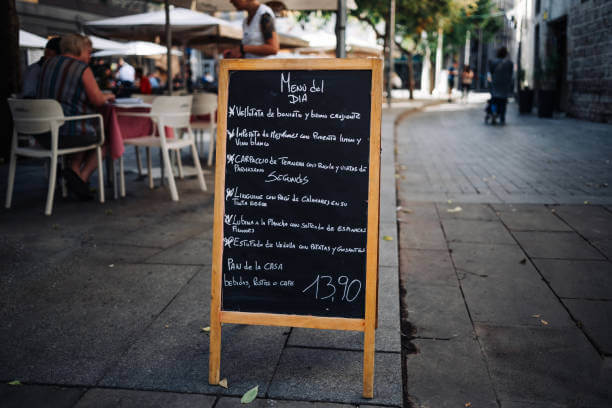 Menú del
DIA
Vellutata de boniato y beino crujiente
Infotata de mejillones con Pimenta limon y
Vino blanco
CARPACCIO de Ternera con Rucola y virutas de
Parmesano
Segundos
Linguine con Ragú de Calamares en su
Tinta
Lubina a la Plancha con salteado de espinacas
Estufado de Vedella con Patatas y Guisantes
PAN de la CASA
bebidas, Postre o CAFE
13,90